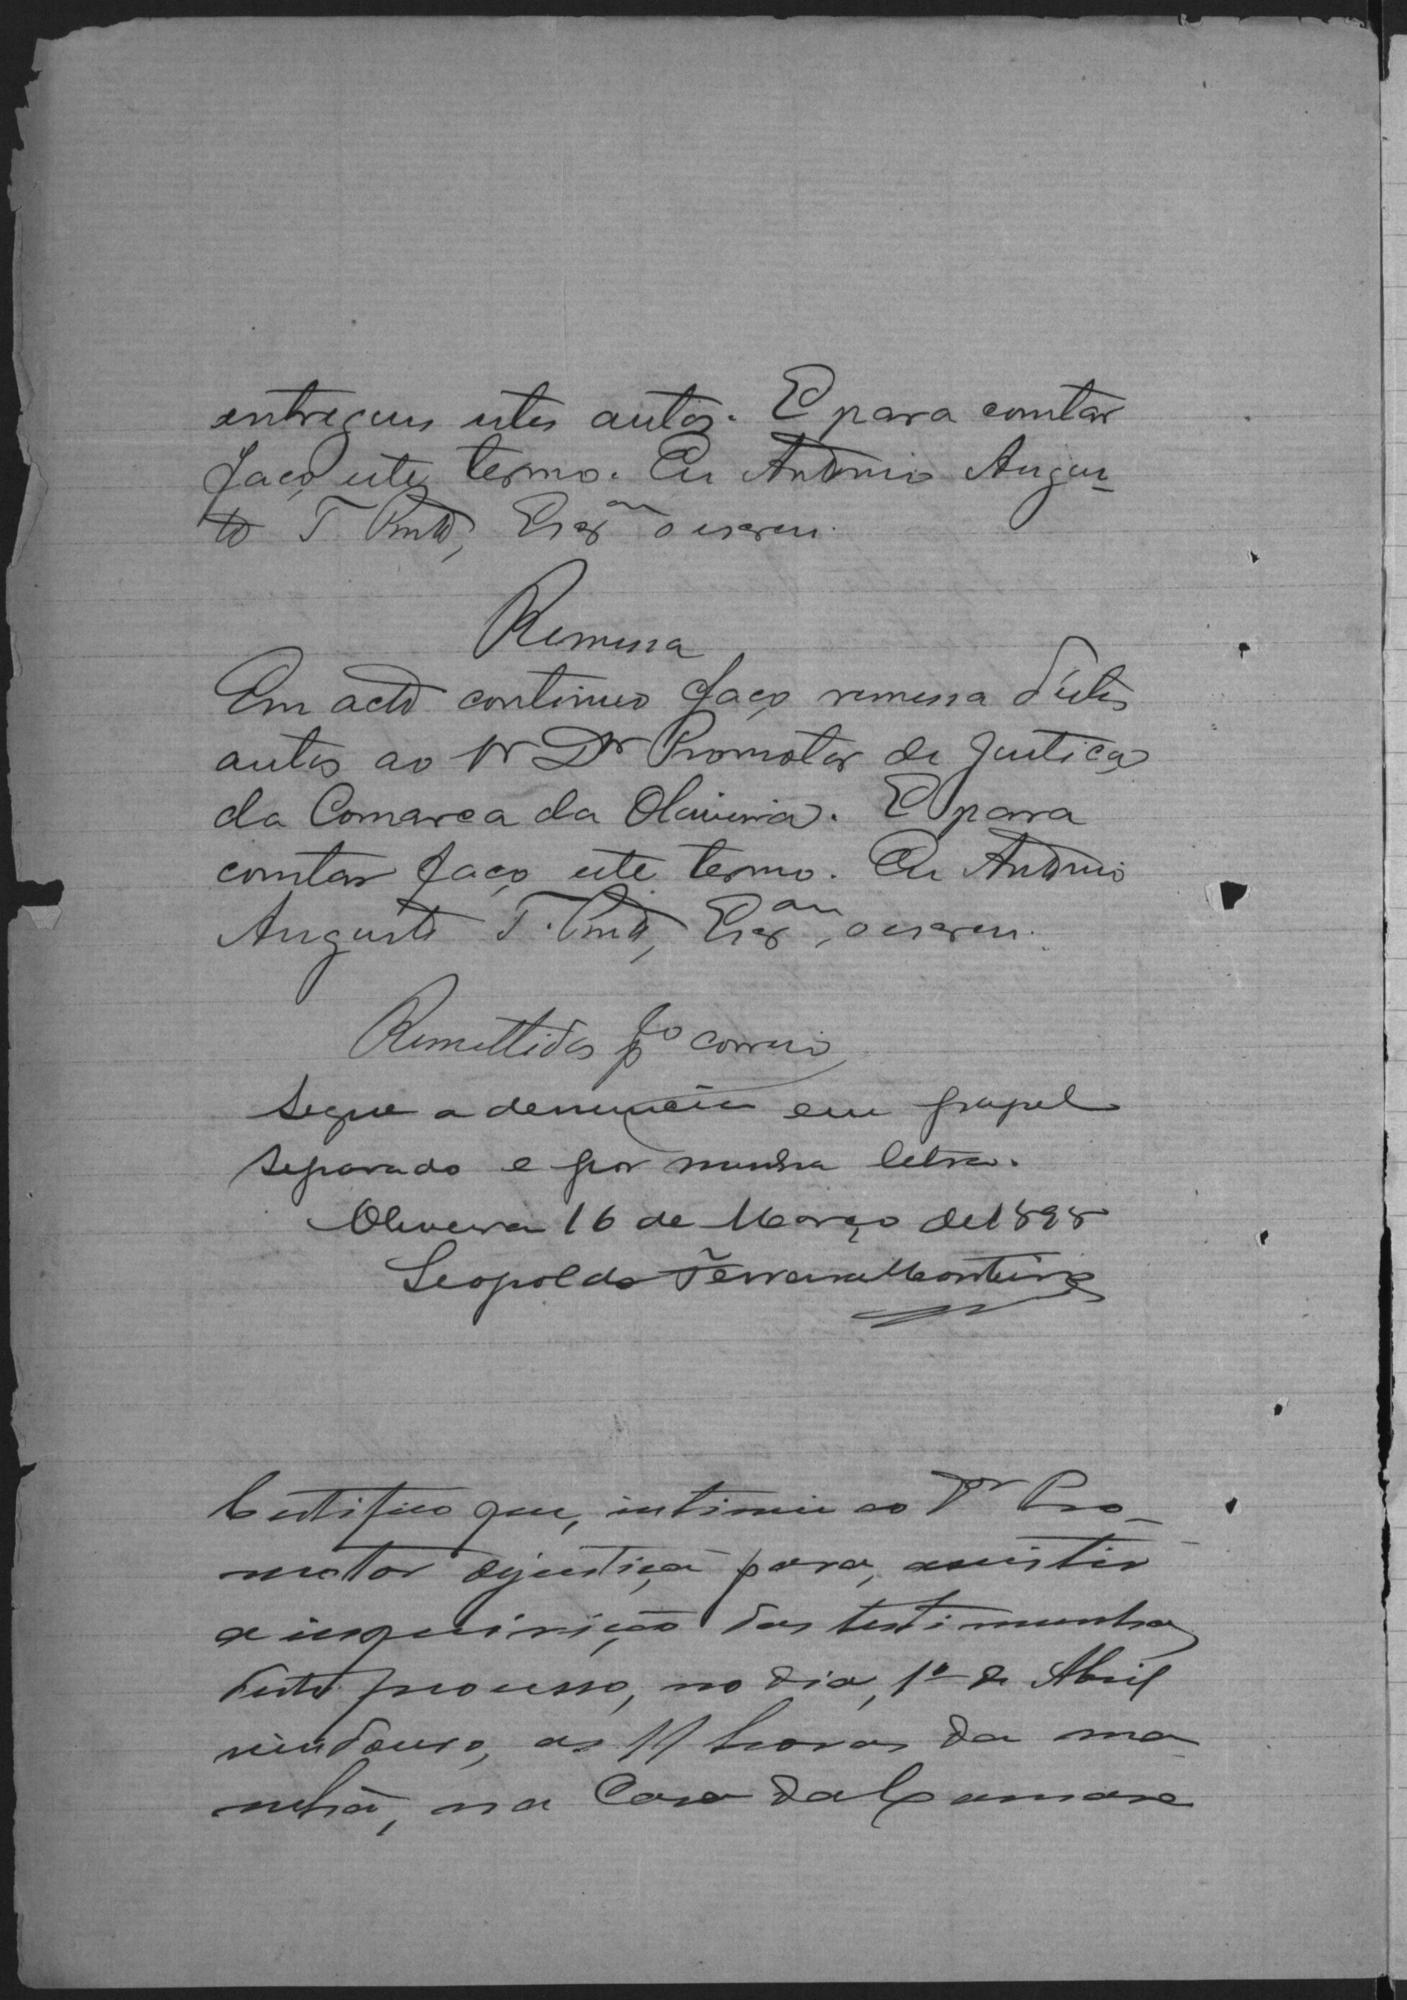 entregues estes autos. E para constar
faço este termo. Eu Antonio Augus-
to T. Pinto, Escr.am o escrevi.
Remessa
Em acto continuo faço remessa d'estes
autos ao Sr Dr Promotor de Justiça
da Comarca da Oliveira. E para
constar faço este termo. Eu Antonio
Augusto T. Pinto, Escr.am, o escrevi.
Remettidos po correio
Segue a denuncia em papel
separado e por minha letra.
Oliveira 16 de Março de 1898
Leopoldo Ferreira Monteiro
Certifico que, intimei ao Dr Pro-
motor dejustiça para, assistir
a inquirição das testimunhas
deste processo, no dia, 1º de Abril
vindouro, as 11 horas da ma
nhã, na Casa da Camara